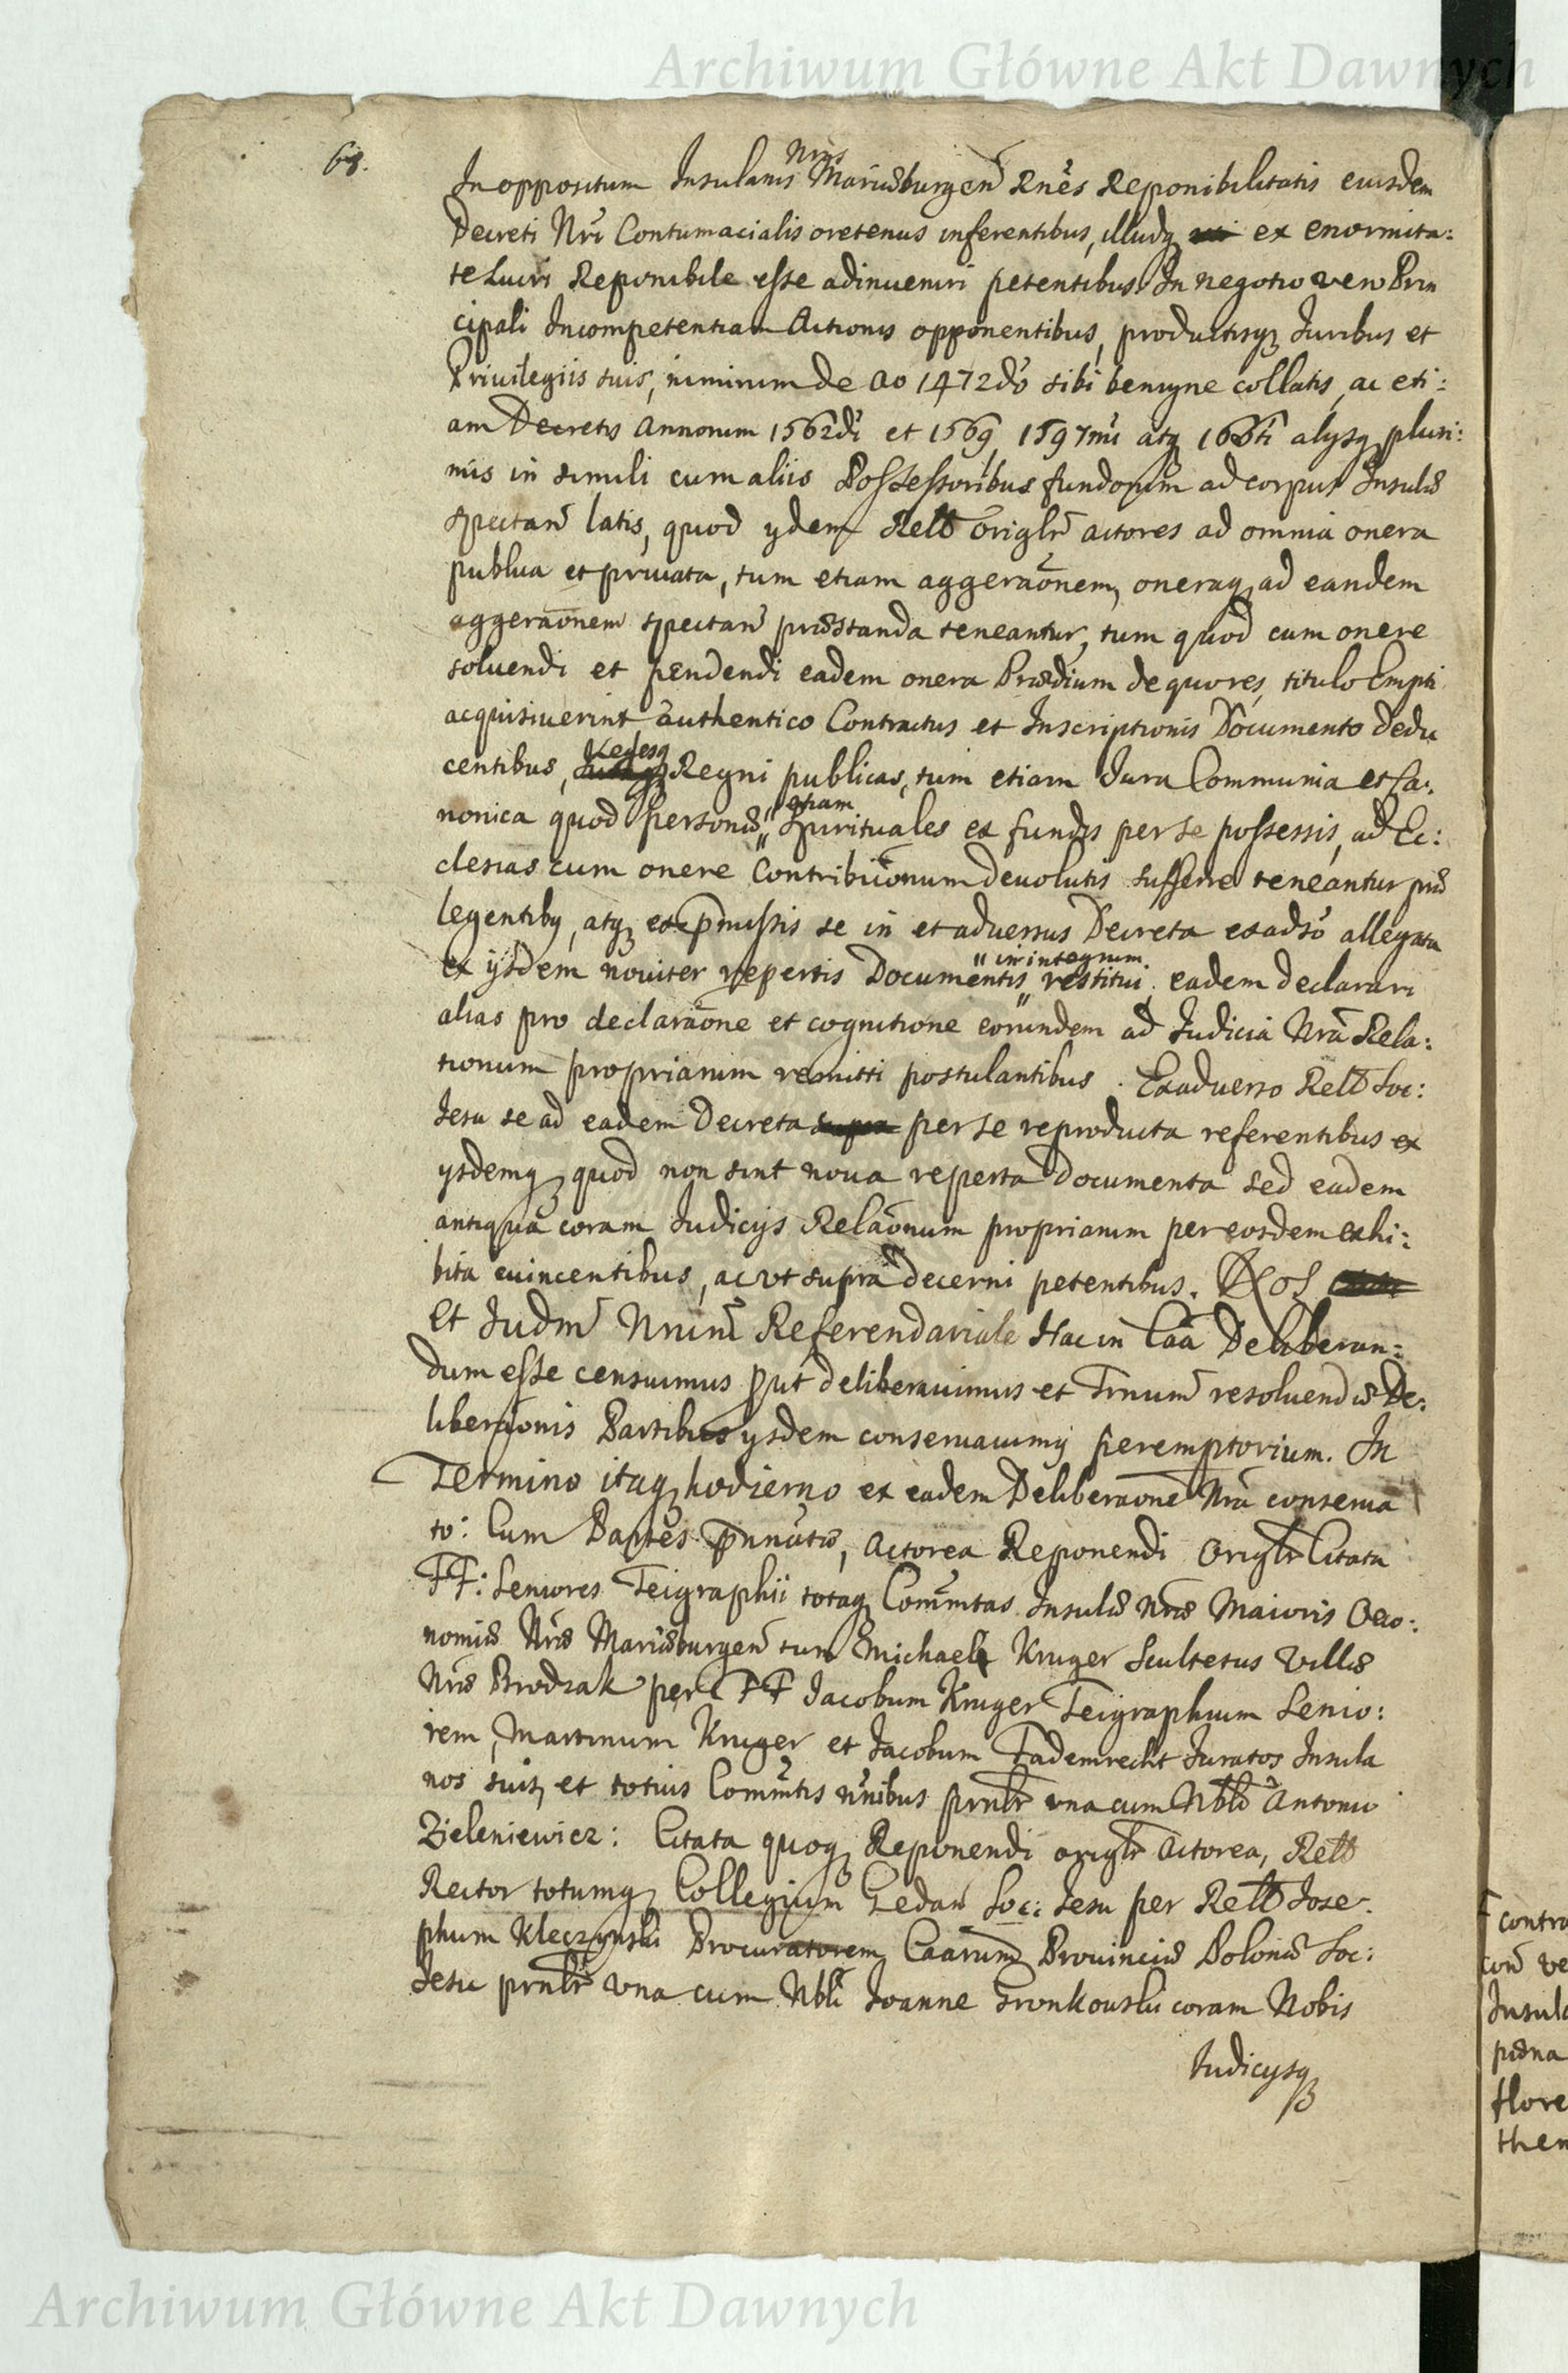 Archiwum Główne Akt Dawnych
68.
In oppositum Insulanis Nris Mariæburgen̄ Rnēs Reponibilitatis eiusdem
Decreti Nri Contumacialis oretenus inferentibus, illudq ex enormita:
te Lucri Reponibile esse adinueniri petentibus. In negotio vero Prin
cipali Incompetentiam Actionis opponentibus, productisq Juribus et
Priuilegiis suis, nimirum de Ao 1472dō sibi benigne collatis, ac eti:
am Decretis Annorum 1562di et 1569, 1597mi atq alysq pluri:
mis in simili cum aliis Possessoribus fundorum ad corpus Insulæ
spectan̄ latis, quod ydem Relb origlr̄ actores ad omnia onera
publica et priuata, tum etiam aggeraōnem, oneraq ad eandem
aggeraōnem spectan̄ præstanda teneantur, tum quod cum onere
soluendi et pendendi eadem onera Prædium de quo res, titulo Empti
acquisiuerint authentico Contractus et Inscriptionis Documento dedu
centibus, Legesq Regni publicas, tum etiam Jura Communia et Ca:
nonica quod personæ etiam Spirituales ex fundis per se possessis, ad Ec:
clesias cum onere Contribuōnum deuolutis sufferre teneantur præ
legentibq, atq ex pmissis se in et aduersus Decreta exadsō allegata
ex ijsdem nouiter repertis Documentis in integrum restitui, eadem declarari
alias pro declaraōne et cognitione eorundem ad Judicia Nrā Rela:
tionum propriarum remitti postulantibus. Exaduerso Relb Soc:
Jesu se ad eadem Decreta per se reproducta referentibus ex
ysdemq quod non sint noua reperta Documenta sed eadem
antiqua coram Judicijs Relaōnum propriarum per eosdem exhi:
bita euincentibus, ac vt supra decerni petentibus. Nos
Et Judm̄ Nrum̄ Referendariale Hac in Caā Deliberan:
dum esse censuimus put deliberauimus et Trnum̄ resoluendæ De:
liberaōnis Partibus ysdem conseruauimq peremptorium. In
Termino itaq hodierno ex eadem Deliberaōne Nrā conserua
to: Cum Partes pnnatæ, Actorea Reponendi Origlr̄ Citata
FF: Seniores Teigraphii totaq Commtas Insulæ Nræ Maioris Oeco:
nomiæ Nræ Mariæburgen̄ tum Michael Kruger Scultetus Villæ
Nræ Brodzak per FF Jacobum Kruger Teigraphum Senio:
rem, Martinum Kruger et Jacobum Fademrecht Juratos Insula
nos suis, et totius Commtis nnibus prntr̄ vna cum Nbli Antonio
Zieleniewicz: Citata quoq Reponendi origlr̄ Actorea, Relb
Rector totumq Collegium Gedan̄ Soc: Jesu per Relb Jose:
phum Kleczynski Procuratorem Caarum̄ Prouinciæ Polonæ Soc:
Jesu prntr̄ vna cum Nbli Joanne Gronkouski coram Nobis
Judicysq
contra
con̄ ve
Insula
pæna
flore
them
Archiwum Główne Akt Dawnych